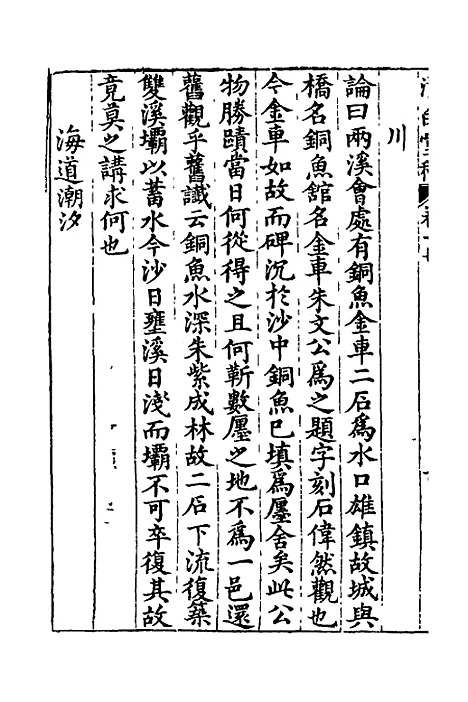 川
論曰兩溪會處有銅魚金車二石爲水口雄鎮故城與
橋名銅魚舘名金車朱文公爲之題字刻石偉然觀也
今金車如故而碑沉於沙中銅魚已填爲廛舍矣此公
物勝蹟當日何從得之且何靳數廛之地不爲一邑還
舊觀乎舊讖云銅魚水深朱紫成林故二石下流復築
雙溪壩以蓄水今沙日壅溪日淺而壩不可卒復其故
竟莫之講求何也
海道潮汐